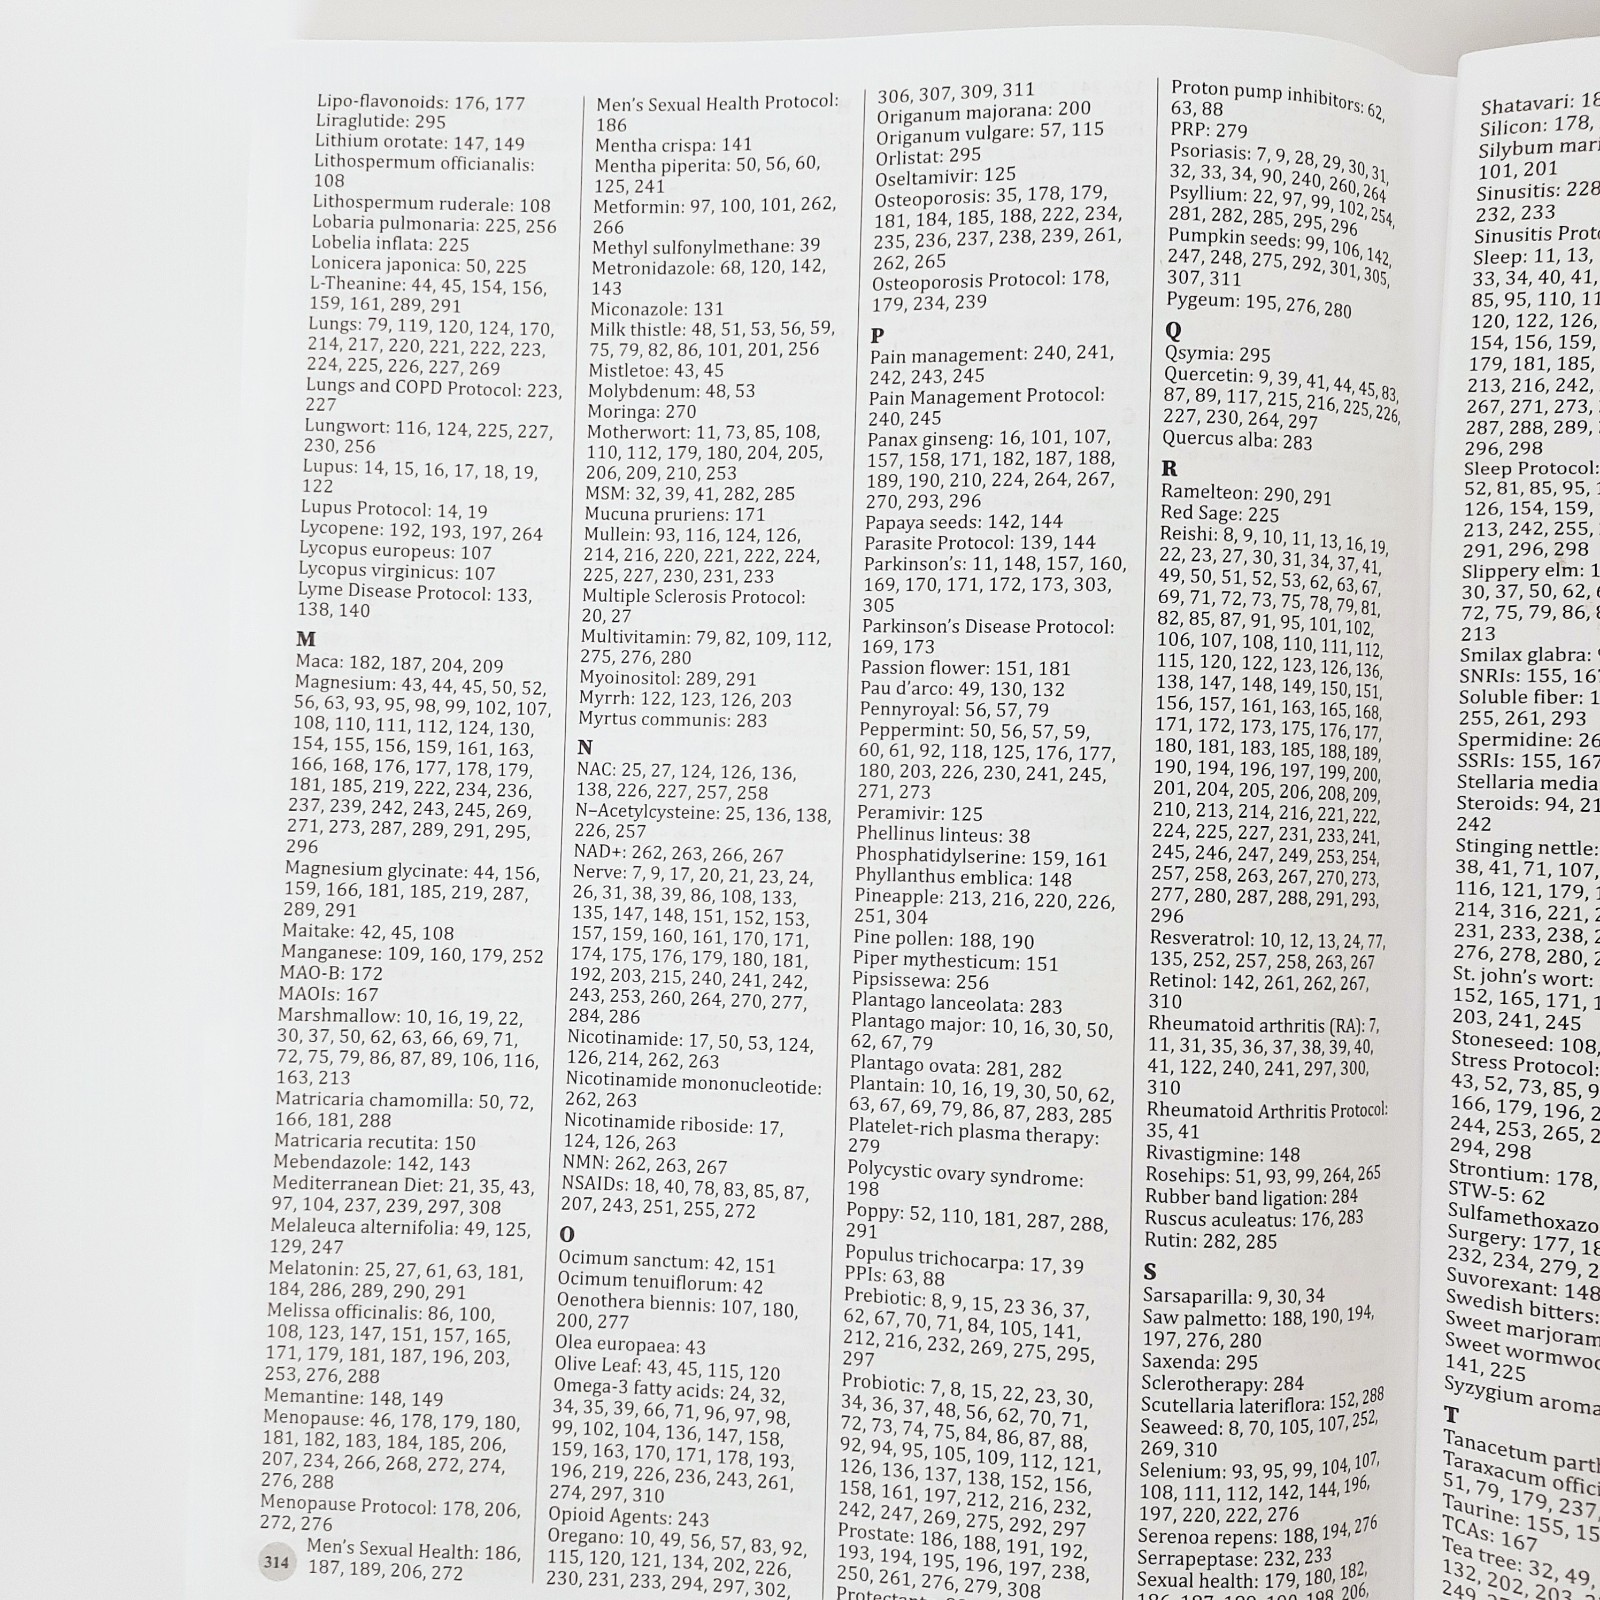 Lipo-flavonoids: 176, 177
Liraglutide: 295
Lithium orotate: 147, 149
Lithospermum officianalis:
108
Lithospermum ruderale: 108
Lobaria pulmonaria: 225, 256
Lobelia inflata: 225
Lonicera japonica: 50, 225
L-Theanine: 44, 45, 154, 156,
159, 161, 289, 291
Lungs: 79, 119, 120, 124, 170,
214, 217, 220, 221, 222, 223,
224, 225, 226, 227, 269
Lungs and COPD Protocol: 223,
227
Lungwort: 116, 124, 225, 227,
230, 256
Lupus: 14, 15, 16, 17, 18, 19,
122
Lupus Protocol: 14, 19
Lycopene: 192, 193, 197, 264
Lycopus europeus: 107
Lycopus virginicus: 107
Lyme Disease Protocol: 133,
138, 140
M
Maca: 182, 187, 204, 209
Magnesium: 43, 44, 45, 50, 52,
56, 63, 93, 95, 98, 99, 102, 107,
108, 110, 111, 112, 124, 130,
154, 155, 156, 159, 161, 163,
166, 168, 176, 177, 178, 179,
181, 185, 219, 222, 234, 236,
237, 239, 242, 243, 245, 269,
271, 273, 287, 289, 291, 295,
296
Magnesium glycinate: 44, 156,
159, 166, 181, 185, 219, 287,
289, 291
Maitake: 42, 45, 108
Manganese: 109, 160, 179, 252
MAO-B: 172
MAOIs: 167
Marshmallow: 10, 16, 19, 22,
30, 37, 50, 62, 63, 66, 69, 71,
72, 75, 79, 86, 87, 89, 106, 116,
163, 213
Matricaria chamomilla: 50, 72,
166, 181, 288
Matricaria recutita: 150
Mebendazole: 142, 143
Mediterranean Diet: 21, 35, 43,
97, 104, 237, 239, 297, 308
Melaleuca alternifolia: 49, 125,
129, 247
Melatonin: 25, 27, 61, 63, 181,
184, 286, 289, 290, 291
Melissa officinalis: 86, 100,
108, 123, 147, 151, 157, 165,
171, 179, 181, 187, 196, 203,
253, 276, 288
Memantine: 148, 149
Menopause: 46, 178, 179, 180,
181, 182, 183, 184, 185, 206,
207, 234, 266, 268, 272, 274,
276, 288
Menopause Protocol: 178, 206,
272, 276
Men's Sexual Health: 186,
187, 189, 206, 272
314
Men's Sexual Health Protocol:
186
Mentha crispa: 141
Mentha piperita: 50, 56, 60,
125, 241
Metformin: 97, 100, 101, 262,
266
Methyl sulfonylmethane: 39
Metronidazole: 68, 120, 142,
143
Miconazole: 131
Milk thistle: 48, 51, 53, 56, 59,
75, 79, 82, 86, 101, 201, 256
Mistletoe: 43, 45
Molybdenum: 48, 53
Moringa: 270
Motherwort: 11, 73, 85, 108,
110, 112, 179, 180, 204, 205,
206, 209, 210, 253
MSM: 32, 39, 41, 282, 285
Mucuna pruriens: 171
Mullein: 93, 116, 124, 126,
214, 216, 220, 221, 222, 224,
225, 227, 230, 231, 233
Multiple Sclerosis Protocol:
20, 27
Multivitamin: 79, 82, 109, 112,
275, 276, 280
Myoinositol: 289, 291
Myrrh: 122, 123, 126, 203
Myrtus communis: 283
N
NAC: 25, 27, 124, 126, 136,
138, 226, 227, 257, 258
N–Acetylcysteine: 25, 136, 138,
226, 257
NAD+: 262, 263, 266, 267
Nerve: 7, 9, 17, 20, 21, 23, 24,
26, 31, 38, 39, 86, 108, 133,
135, 147, 148, 151, 152, 153,
157, 159, 160, 161, 170, 171,
174, 175, 176, 179, 180, 181,
192, 203, 215, 240, 241, 242,
243, 253, 260, 264, 270, 277,
284, 286
Nicotinamide: 17, 50, 53, 124,
126, 214, 262, 263
Nicotinamide mononucleotide:
262, 263
Nicotinamide riboside: 17,
124, 126, 263
NMN: 262, 263, 267
NSAIDs: 18, 40, 78, 83, 85, 87,
207, 243, 251, 255, 272
O
Ocimum sanctum: 42, 151
Ocimum tenuiflorum: 42
Oenothera biennis: 107, 180,
200, 277
Olea europaea: 43
Olive Leaf: 43, 45, 115, 120
Omega-3 fatty acids: 24, 32,
34, 35, 39, 66, 71, 96, 97, 98,
99, 102, 104, 136, 147, 158,
159, 163, 170, 171, 178, 193,
196, 219, 226, 236, 243, 261,
274, 297, 310
Opioid Agents: 243
Oregano: 10, 49, 56, 57, 83, 92,
115, 120, 121, 134, 202, 226,
230, 231, 233, 294, 297, 302,
306, 307, 309, 311
Origanum majorana: 200
Origanum vulgare: 57, 115
Orlistat: 295
Oseltamivir: 125
Osteoporosis: 35, 178, 179,
181, 184, 185, 188, 222, 234,
235, 236, 237, 238, 239, 261,
262, 265
Osteoporosis Protocol: 178,
179, 234, 239
P
Pain management: 240, 241,
242, 243, 245
Pain Management Protocol:
240, 245
Panax ginseng: 16, 101, 107,
157, 158, 171, 182, 187, 188,
189, 190, 210, 224, 264, 267,
270, 293, 296
Papaya seeds: 142, 144
Parasite Protocol: 139, 144
Parkinson's: 11, 148, 157, 160,
169, 170, 171, 172, 173, 303,
305
Parkinson's Disease Protocol:
169, 173
Passion flower: 151, 181
Pau d'arco: 49, 130, 132
Pennyroyal: 56, 57, 79
Peppermint: 50, 56, 57, 59,
60, 61, 92, 118, 125, 176, 177,
180, 203, 226, 230, 241, 245,
271, 273
Peramivir: 125
Phellinus linteus: 38
Phosphatidylserine: 159, 161
Phyllanthus emblica: 148
Pineapple: 213, 216, 220, 226,
251, 304
Pine pollen: 188, 190
Piper mythesticum: 151
Pipsissewa: 256
Plantago lanceolata: 283
Plantago major: 10, 16, 30, 50,
62, 67, 79
Plantago ovata: 281, 282
Plantain: 10, 16, 19, 30, 50, 62,
63, 67, 69, 79, 86, 87, 283, 285
Platelet-rich plasma therapy:
279
Polycystic ovary syndrome:
198
Poppy: 52, 110, 181, 287, 288,
291
Populus trichocarpa: 17, 39
PPIs: 63, 88
Prebiotic: 8, 9, 15, 23 36, 37,
62, 67, 70, 71, 84, 105, 141,
212, 216, 232, 269, 275, 295,
297
Probiotic: 7, 8, 15, 22, 23, 30,
34, 36, 37, 48, 56, 62, 70, 71,
72, 73, 74, 75, 84, 86, 87, 88,
92, 94, 95, 105, 109, 112, 121,
126, 136, 137, 138, 152, 156,
158, 161, 197, 212, 216, 232,
242, 247, 269, 275, 292, 297
Prostate: 186, 188, 191, 192,
193, 194, 195, 196, 197, 238,
250, 261, 276, 279, 308
Proton pump inhibitors: 62,
63, 88
PRP: 279
Psoriasis: 7, 9, 28, 29, 30, 31,
32, 33, 34, 90, 240, 260, 264
Psyllium: 22, 97, 99, 102, 254,
281, 282, 285, 295, 296
Pumpkin seeds: 99, 106, 142,
247, 248, 275, 292, 301, 305,
307, 311
Pygeum: 195, 276, 280
Q
Qsymia: 295
Quercetin: 9, 39, 41, 44, 45, 83,
87, 89, 117, 215, 216, 225, 226,
227, 230, 264, 297
Quercus alba: 283
R
Ramelteon: 290, 291
Red Sage: 225
Reishi: 8, 9, 10, 11, 13, 16, 19,
22, 23, 27, 30, 31, 34, 37, 41,
49, 50, 51, 52, 53, 62, 63, 67,
69, 71, 72, 73, 75, 78, 79, 81,
82, 85, 87, 91, 95, 101, 102,
106, 107, 108, 110, 111, 112,
115, 120, 122, 123, 126, 136,
138, 147, 148, 149, 150, 151,
156, 157, 161, 163, 165, 168,
171, 172, 173, 175, 176, 177,
180, 181, 183, 185, 188, 189,
190, 194, 196, 197, 199, 200,
201, 204, 205, 206, 208, 209,
210, 213, 214, 216, 221, 222,
224, 225, 227, 231, 233, 241,
245, 246, 247, 249, 253, 254,
257, 258, 263, 267, 270, 273,
277, 280, 287, 288, 291, 293,
296
Resveratrol: 10, 12, 13, 24, 77,
135, 252, 257, 258, 263, 267
Retinol: 142, 261, 262, 267,
310
Rheumatoid arthritis (RA): 7,
11, 31, 35, 36, 37, 38, 39, 40,
41, 122, 240, 241, 297, 300,
310
Rheumatoid Arthritis Protocol:
35, 41
Rivastigmine: 148
Rosehips: 51, 93, 99, 264, 265
Rubber band ligation: 284
Ruscus aculeatus: 176, 283
Rutin: 282, 285
S
Sarsaparilla: 9, 30, 34
Saw palmetto: 188, 190, 194,
197, 276, 280
Saxenda: 295
Sclerotherapy: 284
Scutellaria lateriflora: 152, 288
Seaweed: 8, 70, 105, 107, 252,
269, 310
Selenium: 93, 95, 99, 104, 107,
108, 111, 112, 142, 144, 196,
197, 220, 222, 276
Serenoa repens: 188, 194, 276
Serrapeptase: 232, 233
Sexual health: 179, 180, 182,
Shatavari:
Silicon: 178,
Silybum
101, 201
Sinusitis: 228
232, 233
Sinusitis
Sleep: 11, 13,
33, 34, 40, 41,
85, 95, 110,
120, 122, 126,
154, 156, 159,
179, 181, 185,
213, 216, 242,
267, 271, 273,
287, 288, 289,
296, 298
Sleep Protocol:
52, 81, 85, 95,
126, 154, 159,
213, 242, 255,
291, 296, 298
Slippery elm:
30, 37, 50, 62,
72, 75, 79, 86,
213
Smilax glabra:
SNRIs: 155,
Soluble fiber:
255, 261, 293
Spermidine:
SSRIs: 155,
Stellaria media
Steroids: 94,
242
Stinging nettle:
38, 41, 71, 107,
116, 121, 179,
214, 316, 221,
231, 233, 238,
276, 278, 280,
St. john's wort:
152, 165, 171,
203, 241, 245
Stoneseed: 108,
Stress Protocol:
43, 52, 73, 85,
166, 179, 196,
244, 253, 265,
294, 298
Strontium: 178,
STW-5: 62
Surgery: 177,
232, 234, 279,
Suvorexant: 148
Swedish bitters:
Sweet marjoram
Sweet
141, 225
Syzygium
T
Tanacetum
Taraxacum
51, 79, 179, 237,
Taurine: 155,
TCAs: 167
Tea tree: 32, 49,
132, 202, 203,